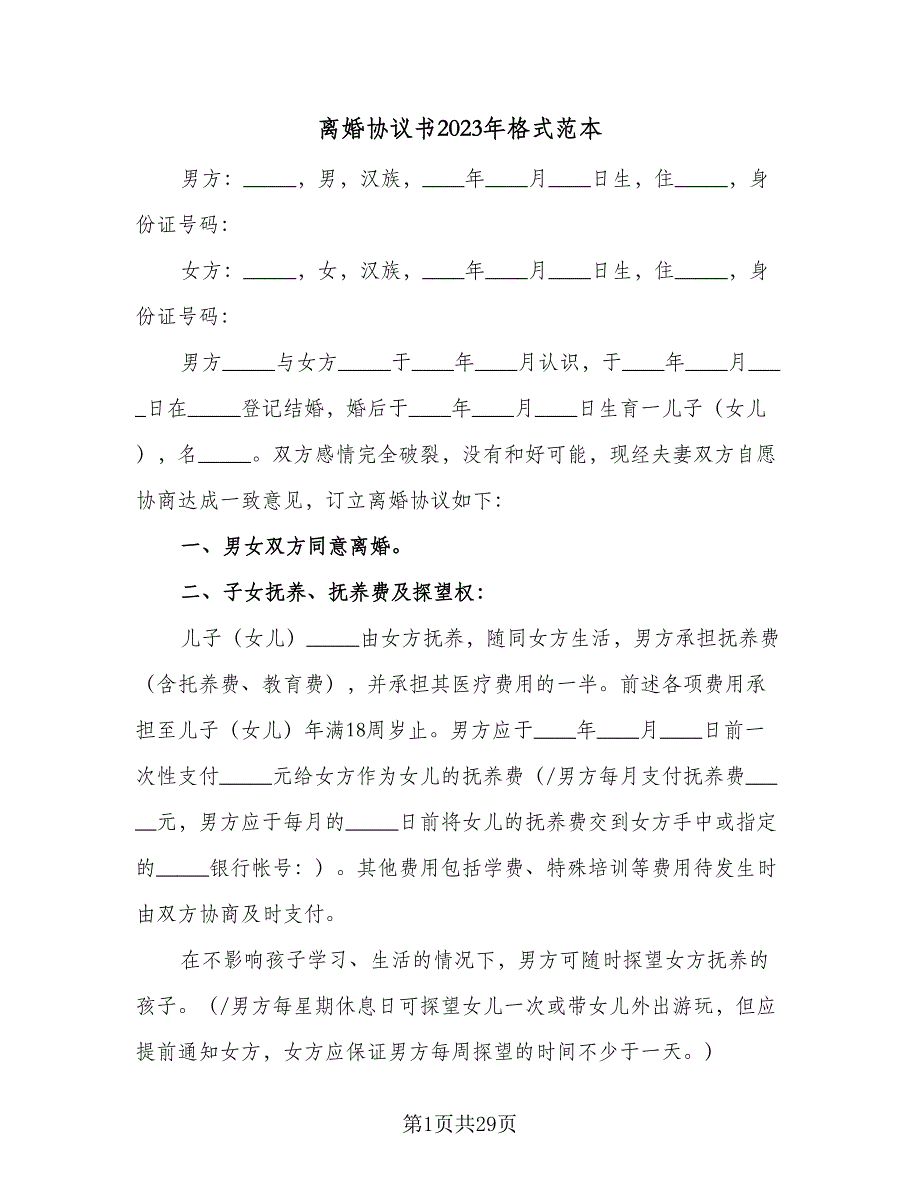 离婚协议书2023年格式范本
男方：_____，男，汉族，____年____月____日生，住_____，身
份证号码：
女方：_____，女，汉族，____年____月____日生，住_____，身
份证号码：
男方_____与女方_____于____年____月认识，于____年____月___
_日在_____登记结婚，婚后于____年____月____日生育一儿子（女儿
），名_____。双方感情完全破裂，没有和好可能，现经夫妻双方自愿
协商达成一致意见，订立离婚协议如下：
一、男女双方同意离婚。
二、子女抚养、抚养费及探望权：
儿子（女儿）_____由女方抚养，随同女方生活，男方承担抚养费
（含托养费、教育费），并承担其医疗费用的一半。前述各项费用承
担至儿子（女儿）年满18周岁止。男方应于____年____月____日前一
次性支付_____元给女方作为女儿的抚养费（/男方每月支付抚养费___
__元，男方应于每月的_____日前将女儿的抚养费交到女方手中或指定
的_____银行帐号：）。其他费用包括学费、特殊培训等费用待发生时
由双方协商及时支付。
在不影响孩子学习、生活的情况下，男方可随时探望女方抚养的
孩子。（/男方每星期休息日可探望女儿一次或带女儿外出游玩，但应
提前通知女方，女方应保证男方每周探望的时间不少于一天。）
第1页共29页